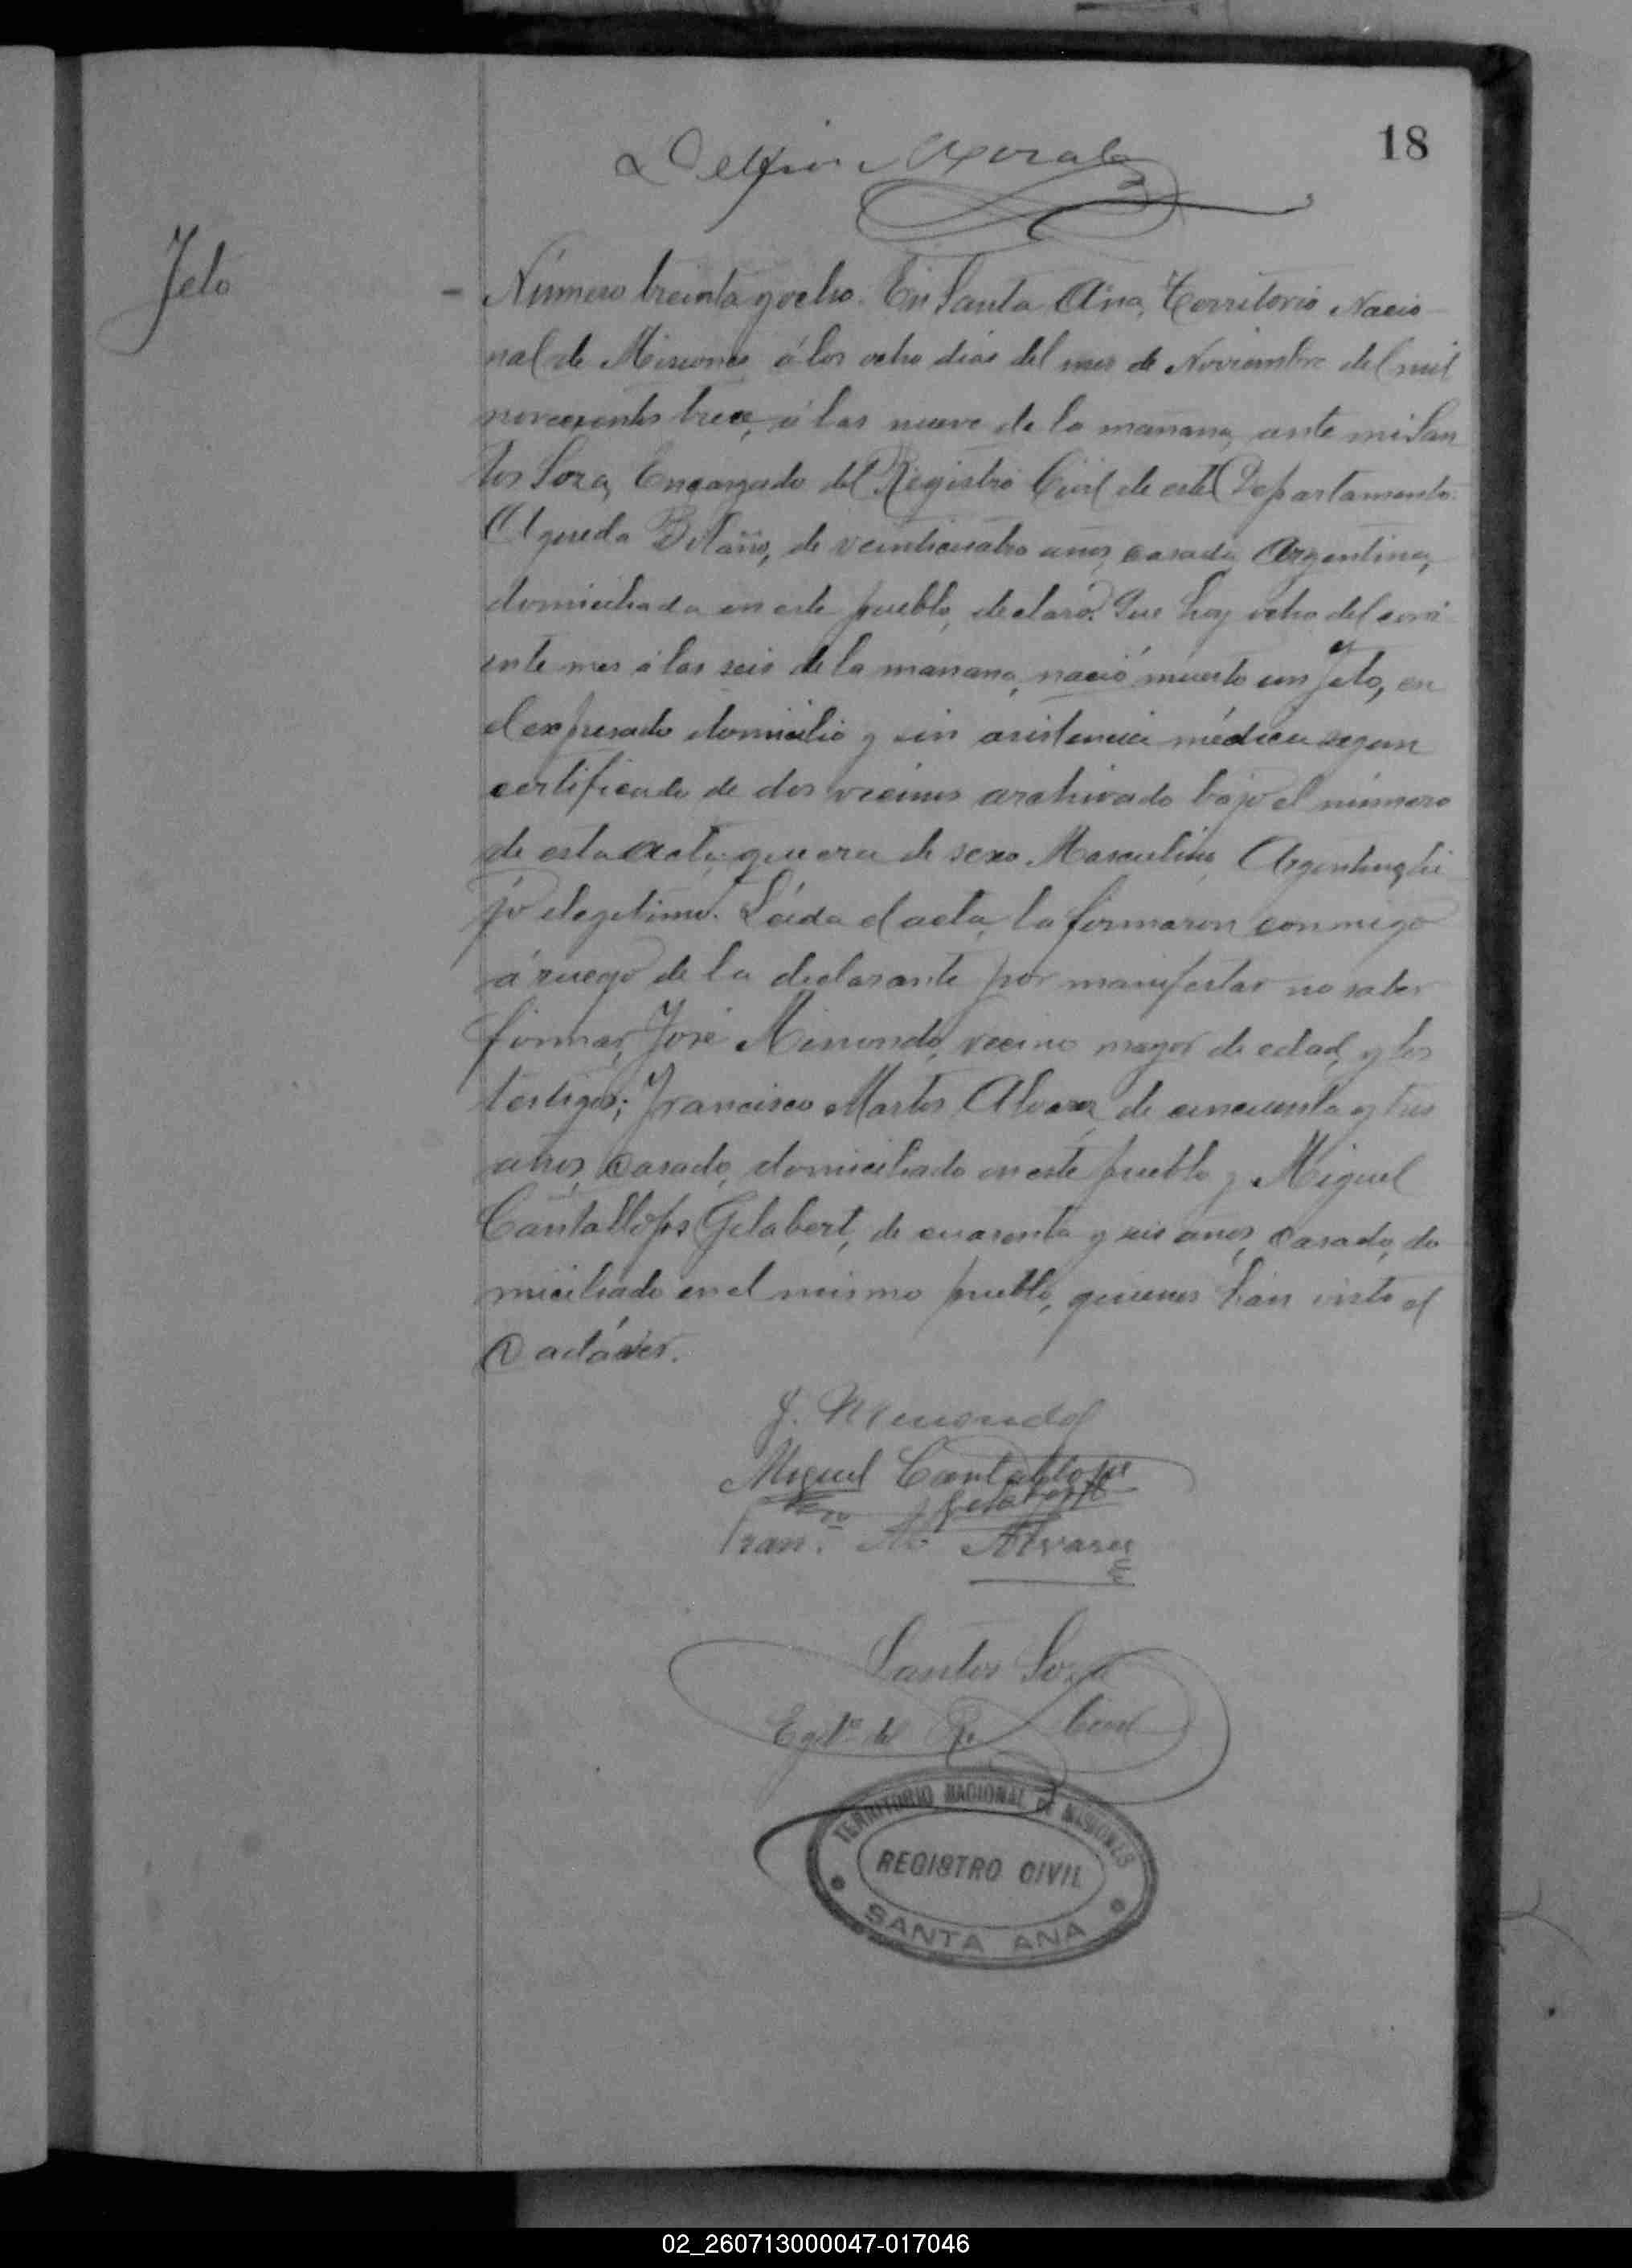 18
Delfin Morales
Feto
Número treinta y ocho. En Santa Ana, Territorio Nacio-
nal de Misiones á los ocho dias del mes de Noviembre del mil
novecientos trece, á las nueve de la mañana, ante mi San
tos Soza, Encargado del Registro Civil de este Departamento.
Agueda Bitaño, de veinticuatro anos, casada, Argentina,
domiciliada en este pueblo, declaró: Que hoy ocho del corri
ente mes á las seis de la manana, nació muerto un feto, en
el expresado domicilio y sin asistencia médica segun
certificado de dos vecinos archivado bajo el número
de esta acta; que era de sexo Masculino, Argentino, hi
jo elegitimo. Leída el acta, la firmaron conmigo
á ruego de la declarante por manifestar no saber
firmar, José Minondo, vecino mayor de edad, y los
testigos; Francisco Martos Alvarez de cincuenta y tres
años, casado, domiciliado en este pueblo y Miguel
Cantallops Gelabert, de cuarenta y seis anos, casado, do
miciliado en el mismo pueblo, quienes han visto el
Cadáver.
J. Minondo
Miguel Cantallops
Gelabert
Fran.co M. Alvarez
Santos Soza
Egdo. del R. Civil
TERRITORIO NACIONAL DE MISIONES
REGISTRO CIVIL
SANTA ANA
02_260713000047-017046